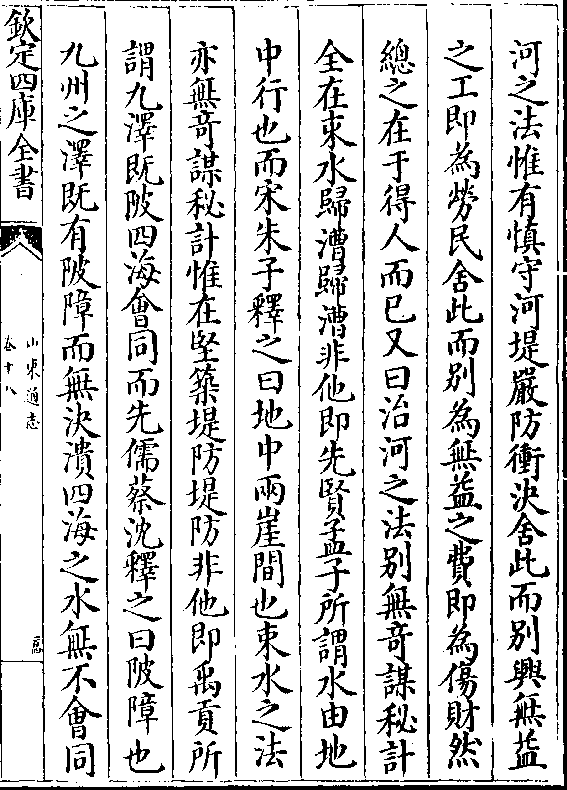 河之法惟有慎守河堤嚴防衝決舍此而别興無益
之工即為勞民舍此而别為無益之費即為傷財然
總之在于得人而已又曰治河之法别無竒謀秘計
全在束水歸漕歸漕非他即先賢孟子所謂水由地
中行也而宋朱子釋之曰地中兩崖間也束水之法
亦無竒謀秘計惟在堅築堤防堤防非他即禹貢所
謂九澤既陂四海會同而先儒蔡沈釋之曰陂障也
九州之澤既有陂障而無決潰四海之水無不會同
欽定四庫全書
山東通志
卷十八